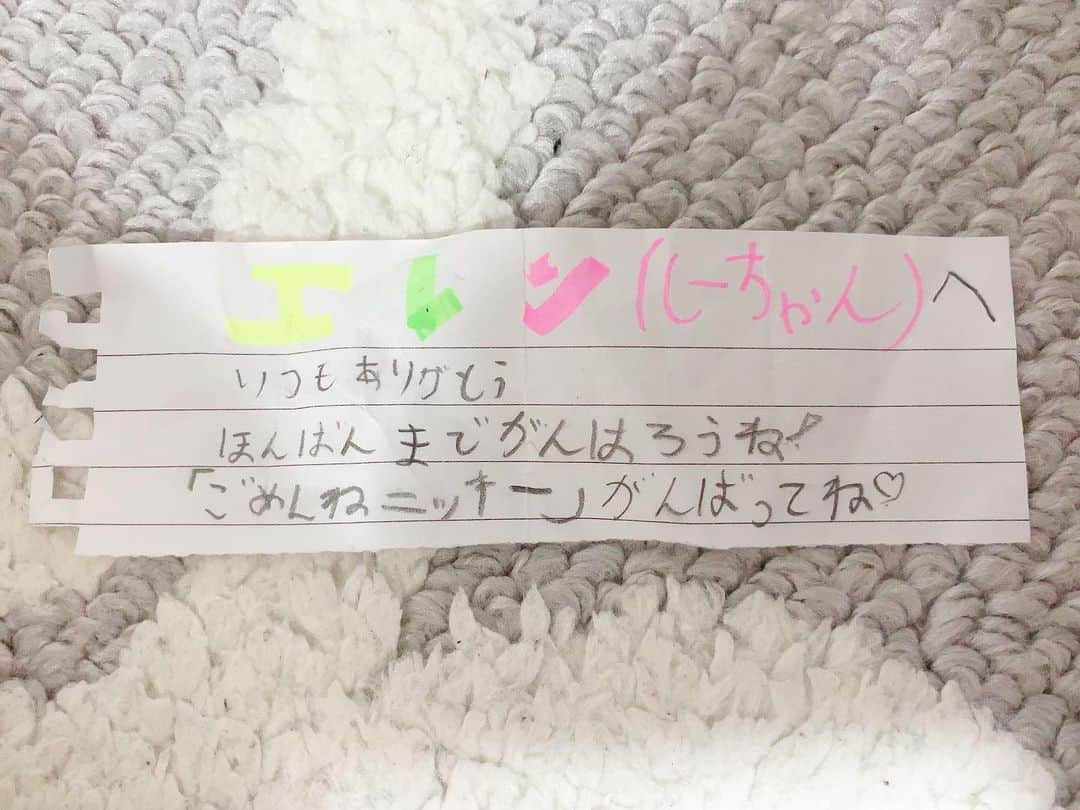 エレン(しーちゃん)へ
いつもありがとう
ほんばんまでがんばろうね!
「ごめんねニッキー」がんばってね♡